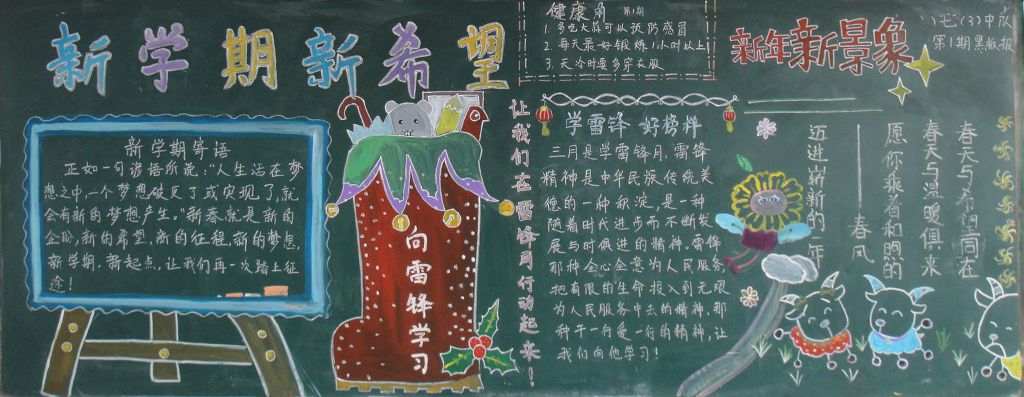 新学期新希望
新学期寄语
正如一句谚语所说："人生活在梦
想之中,一个梦想破灭了或实现了,就
会有新的梦想产生。"新春,就是新的
企盼,新的希望,新的征程,新的梦想,
新学期,新起点,让我们再一次踏上征
途!
向雷锋学习
健康角 第1期
1.多吃大蒜可以预防感冒
2.每天最好锻炼1小时以上
3.天冷时要多穿衣服
让我们在雷锋月行动起来!
学雷锋 好榜样
三月是学雷锋月,雷锋
精神是中华民族传统美
德的一种积淀,是一种
随着时代进步而不断发
展与时俱进的精神,雷锋
那种全心全意为人民服务,
把有限的生命投入到无限
为人民服务中去的精神,那
种干一行爱一行的精神,让
我们向他学习!
新年新景象
(3)中队
第1期黑板报
春天与希望同在
春天与温暖俱来
愿你乘着和煦的
——春风
迈进新的一年